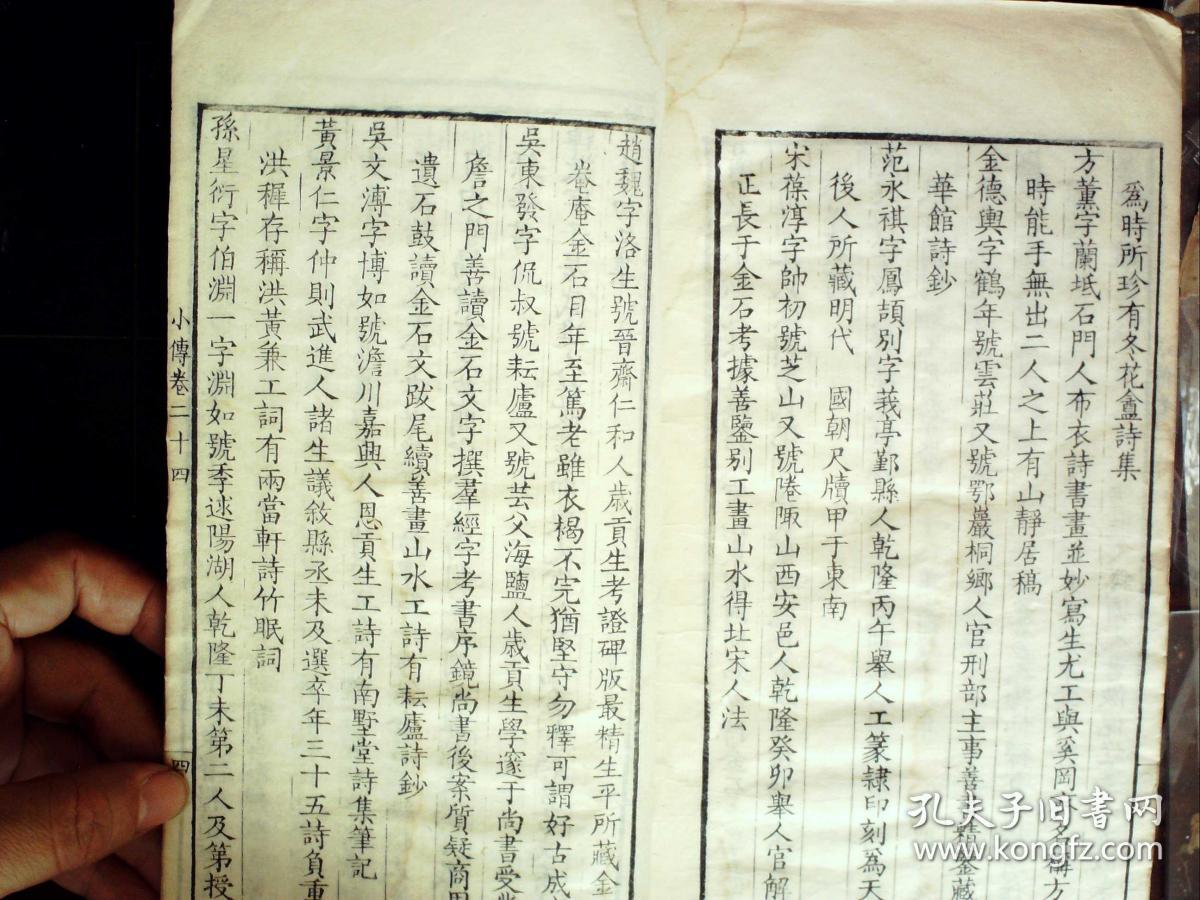 爲時所珍有冬花盦詩集
方薰字蘭坻石門人布衣詩書畫並妙寫生尤工與奚岡
時能手無出二人之上有山靜居稿
金德輿字鶴年號雲莊又號鄂巖桐鄉人官刑部主事善書精鑒藏
華館詩鈔
范永祺字鳳頡別字莪亭鄞縣人乾隆丙午舉人工篆隸印刻爲天
後人所藏明代 國朝尺牘甲于東南
宋葆淳字帥初號芝山又號陒山西安邑人乾隆癸卯舉人官解
正長于金石考據善鑒别工畫山水得北宋人法
趙魏字洛生號晉齋仁和人歲貢生考證碑版最精生平所藏金
菴金石目年至篤老雖衣褐不完猶堅守勿釋可謂好古成
吳東發字侃叔號耘廬又號芸父海鹽人歲貢生學邃于尚書受
詹之門善讀金石文字撰羣經字考書序鏡尚書後案質疑商周
遺石鼓讀金石文跋尾續善畫山水工詩有耘廬詩鈔
吳文溥字博如號澹川嘉興人恩貢生工詩有南墅堂詩集筆記
黃景仁字仲則武進人諸生議敘縣丞未及選卒年三十五詩負重
洪穉存稱洪黃兼工詞有兩當軒詩竹眠詞
孫星衍字伯淵一字淵如號季逑陽湖人乾隆丁未第二人及第授
小傳卷二十四
四
孔夫子旧書网
www.kongfz.com